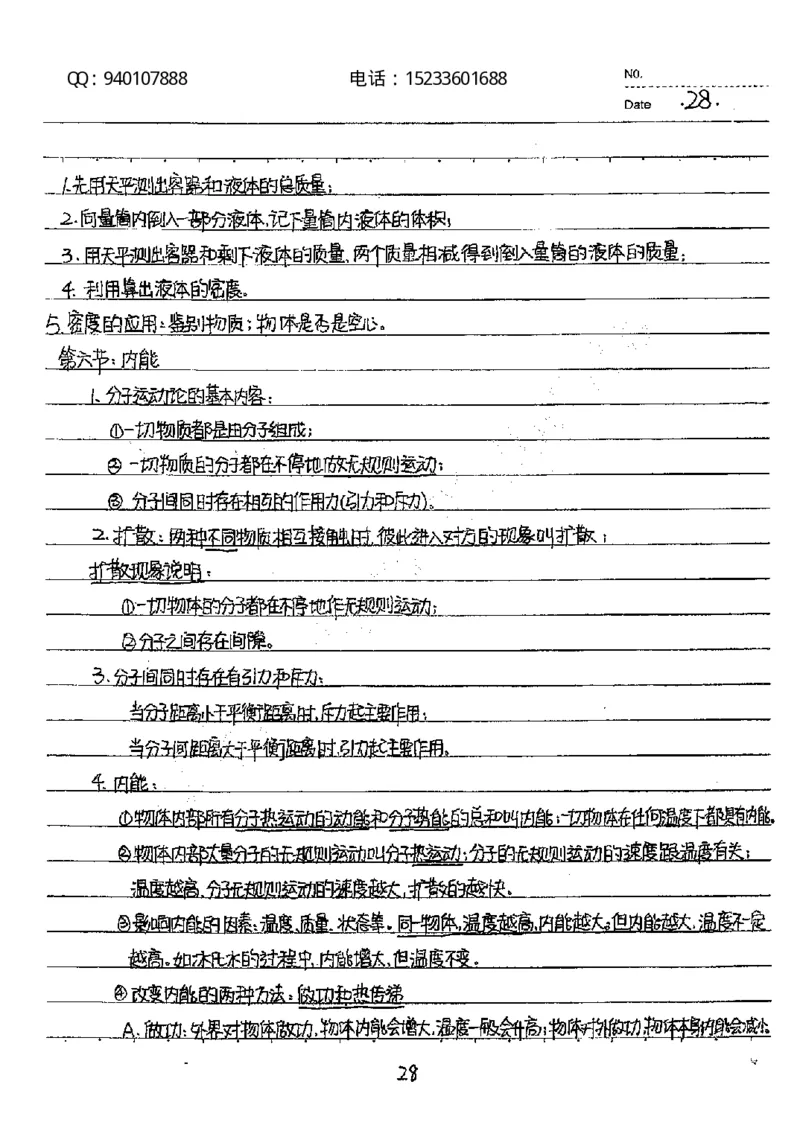 QQ：940107888 电话：15233601688 NO.
Date .28.
1.先用天平测出容器和液体的总质量；
2.向量筒内倒入一部分液体,记下量筒内液体的体积；
3.用天平测出容器和剩下液体的质量,两个质量相减,得到倒入量筒的液体的质量；
4.利用算出液体的密度。
5.密度的应用：鉴别物质；物体是否是空心。
第六节：内能
1.分子运动论的基本内容：
①一切物质都是由分子组成；
②一切物质的分子都在不停地做无规则运动；
③分子间同时存在相互的作用力(引力和斥力)。
2.扩散：两种不同物质相互接触时,彼此进入对方的现象叫扩散；
扩散现象说明：
①一切物体的分子都在不停地作无规则运动；
②分子之间存在间隙。
3.分子间同时存在有引力和斥力：
当分子距离小于平衡距离时,斥力起主要作用；
当分子间距离大于平衡距离时,引力起主要作用。
4.内能：
①物体内部所有分子热运动的动能和分子势能的总和叫内能；一切物体在任何温度下都具有内能。
②物体内部大量分子的无规则运动叫分子热运动；分子的无规则运动的速度跟温度有关；
温度越高,分子无规则运动的速度越大,扩散的越快。
③影响内能的因素：温度、质量、状态等。同一物体,温度越高,内能越大。但内能越大,温度不一定
越高。如冰化水的过程中,内能增大,但温度不变。
④改变内能的两种方法：做功和热传递
A.做功：外界对物体做功,物体内能会增大,温度一般会升高；物体对外做功,物体本身内能会减小.
28